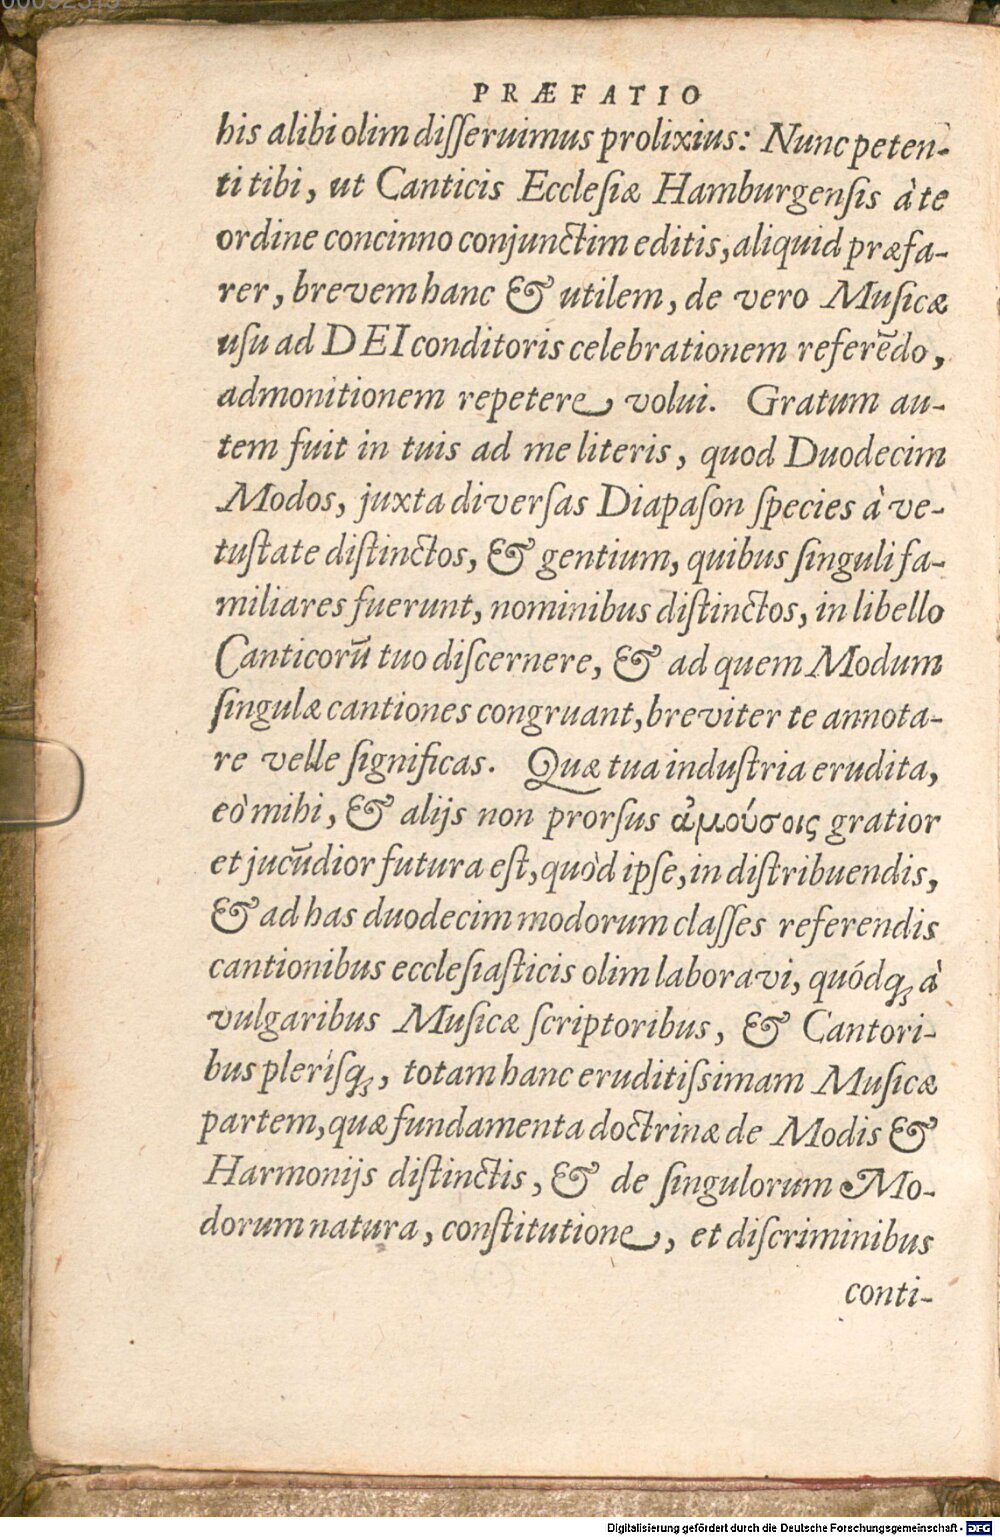 PRÆFATIO
his alibi olim disseruimus prolixius: Nunc peten-
ti tibi, ut Canticis Ecclesiæ Hamburgensis à te
ordine concinno conjunctim editis, aliquid præfa-
rer, brevem hanc & utilem, de vero Musicæ
usu ad DEI conditoris celebrationem referẽdo,
admonitionem repetere volui. Gratum au-
tem fuit in tuis ad me literis, quod Duodecim
Modos, juxta diversas Diapason species à ve-
tustate distinctos, & gentium, quibus singuli fa-
miliares fuerunt, nominibus distinctos, in libello
Canticorũ tuo discernere, & ad quem Modum
singulæ cantiones congruant, breviter te annota-
re velle significas. Quæ tua industria erudita,
eò mihi, & alijs non prorsus ἀμούσοις gratior
et jucũdior futura est, quòd ipse, in distribuendis,
& ad has duodecim modorum classes referendis
cantionibus ecclesiasticis olim laboravi, quódq; à
vulgaribus Musicæ scriptoribus, & Cantori-
bus plerísq;, totam hanc eruditissimam Musicæ
partem, quæ fundamenta doctrinæ de Modis &
Harmonijs distinctis, & de singulorum Mo-
dorum natura, constitutione, et discriminibus
conti-
Digitalisierung gefördert durch die Deutsche Forschungsgemeinschaft - DFG